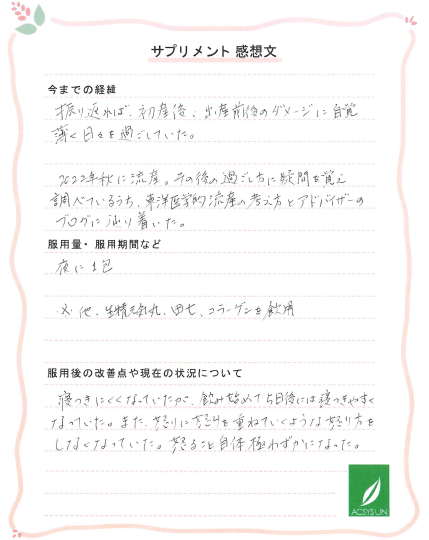 サプリメント 感想文
今までの経緯
振り返れば、初産後、出産前後のダメージに自覚
薄く日々を過ごしていた。
2022年秋に流産。その後の過ごし方に疑問を覚え
調べているうち、東洋医学的流産の考え方とアドバイザーの
ブログに辿り着いた。
服用量・服用期間など
夜に1包
※他、生精元気丸、田七、コラーゲンを飲用
服用後の改善点や現在の状況について
寝つきにくくなっていたが、飲み始めて5日後には寝つきやすく
なっていた。また、怒りに怒りを重ねていくような怒り方を
しなくなっていた。怒ること自体極わずかになった。
ACSYSLIN